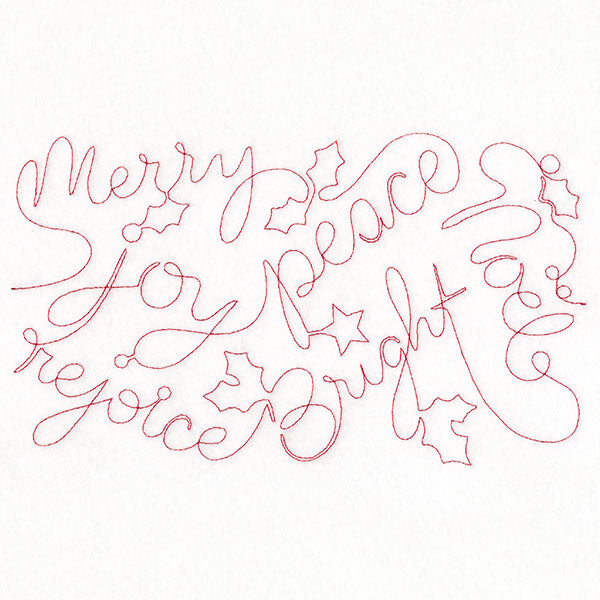 Merry peace
joy
rejoice Bright